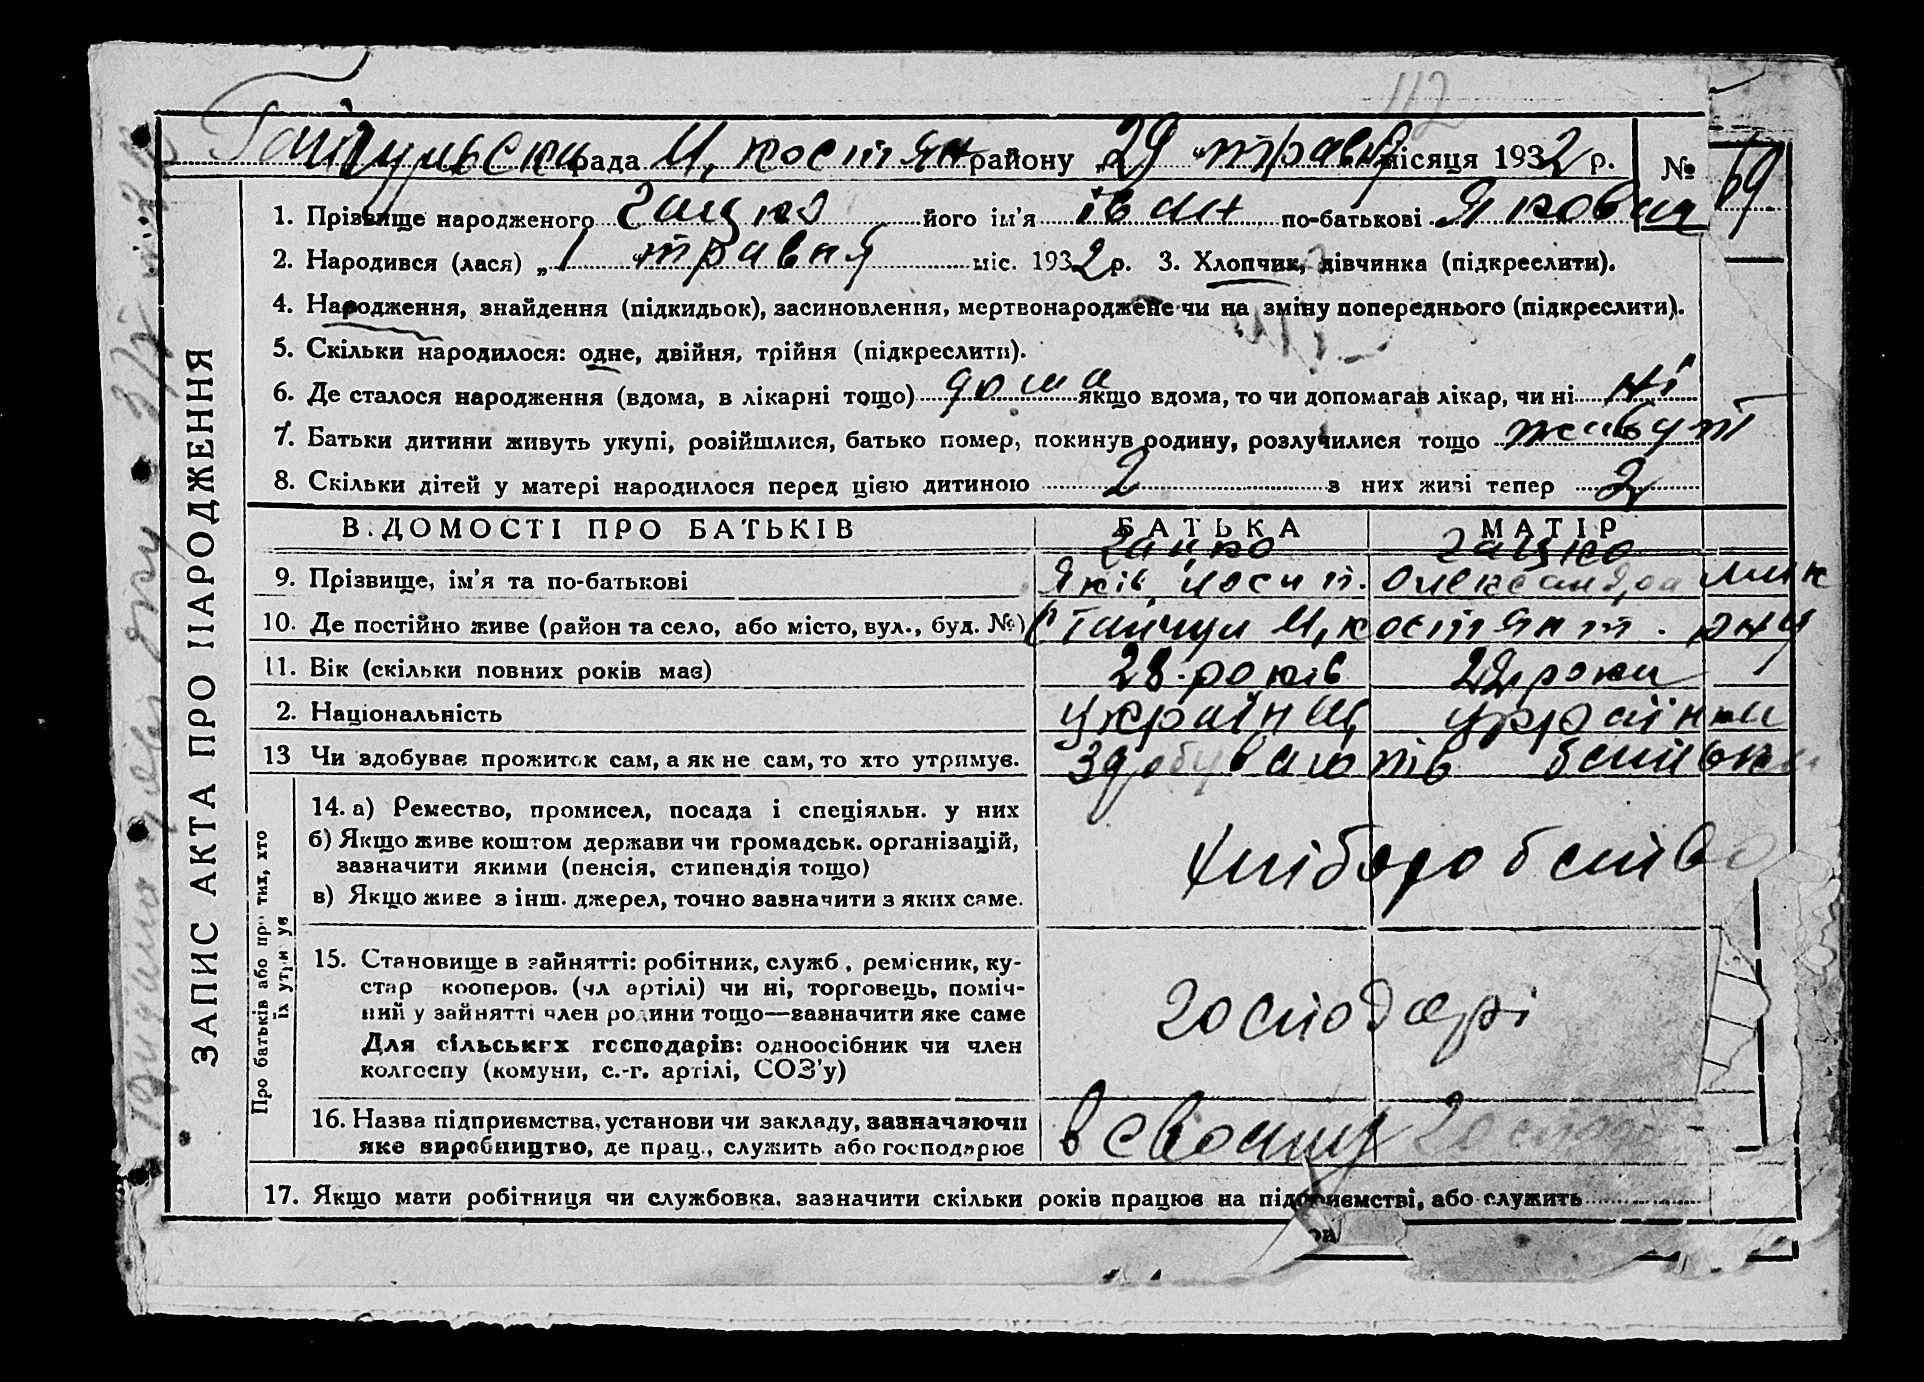 112
рада М, костян району „29 “ травня місяця 1932 р. № 69
1. Прізвище народженого Гацко його ім'я Іван по-батькові Якович
2. Народився (лася) „1 “ травня міс. 1932 р. 3. Хлопчик, дівчинка (підкреслити).
4. Народження, знайдення (підкидьок), засиновлення, мертвонароджене чи на зміну попереднього (підкреслити).
5. Скільки народилося: одне, двійня, трійня (підкреслити).
6. Де сталося народження (вдома, в лікарні тощо) дома якщо вдома, то чи допомагав лікар, чи ні ні
7. Батьки дитини живуть укупі, розійшлися, батько помер, покинув родину, розлучилися тощо живуть
8. Скільки дітей у матері народилося перед цією дитиною 2 з них живі тепер 2
ЗАПИС АКТА ПРО НАРОДЖЕННЯ
В.ДОМОСТІ ПРО БАТЬКІВ БАТЬКА МАТІР
Гацко Гацко
9. Прізвище, ім'я та по-батькові Яків Йосип. Олександра
10. Де постійно живе (район та село, або місто, вул., буд. №) Гайчул М, костянт. рну
11. Вік (скільки повних років має) 28 років 22 роки
2. Національність українц українка
13 Чи здобуває прожиток сам, а як не сам, то хто утримує.
Про батьків або про тих, хто їх утримує
14. а) Ремество, промисел, посада і спеціяльн. у них
б) Якщо живе коштом держави чи громадськ. організацій,
зазначити якими (пенсія, стипендія тощо)
в) Якщо живе з інш. джерел, точно зазначити з яких саме.
хліборобство
15. Становище в зайнятті: робітник, служб , ремісник, ку-
стар кооперов. (чл артілі) чи ні, торговець, поміч-
ний у зайнятті член родини тощо—зазначити яке саме
Для сільських господарів: одноосібник чи член
колгоспу (комуни, с.-г. артілі, СОЗ'у)
господарі
16. Назва підприємства, установи чи закладу, зазначаючи
яке виробництво, де прац., служить або господарює
в своему
17. Якщо мати робітниця чи службовка, зазначити скільки років працює на підприємстві, або служить